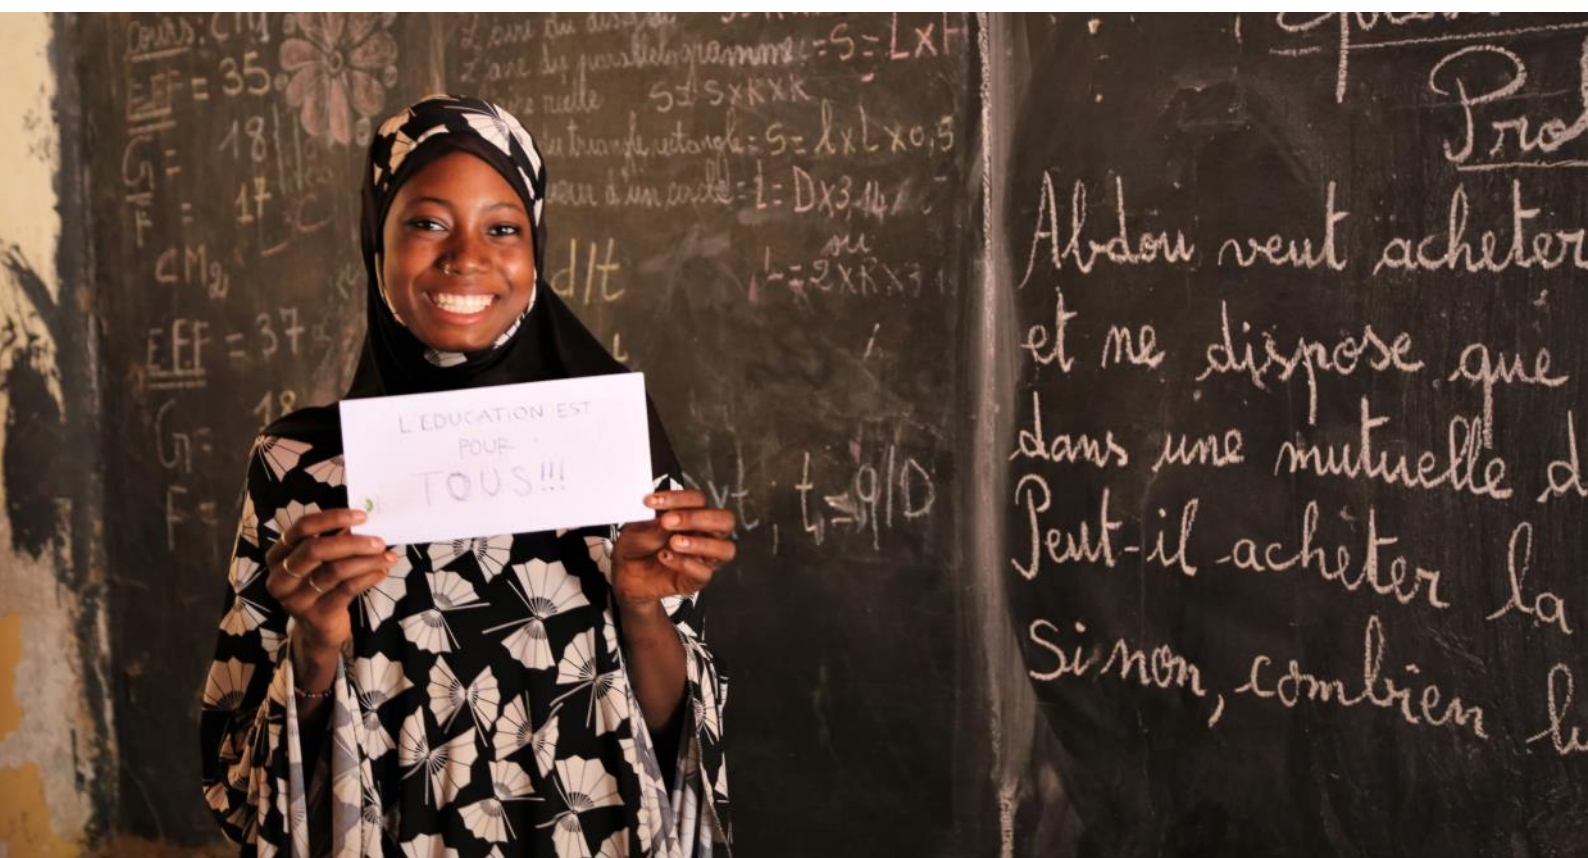 Cours: CM
EFF = 35
G = 18
F = 17
CM2
EFF = 37
G = 18
F =
L'aire du
L'aire du parallélogramme = S = LxH
S = SxRxR
du triangle rectangle = S = lxLx0,5
d'un cercle = L = Dx3,14
ou
L = 2xRx3,1
d/t
vt, t = 9/D
L'EDUCATION EST
POUR
TOUS!!!
Pro
Abdou veut acheter
et ne dispose que
dans une mutuelle d
Peut-il acheter la
Sinon, combien lu